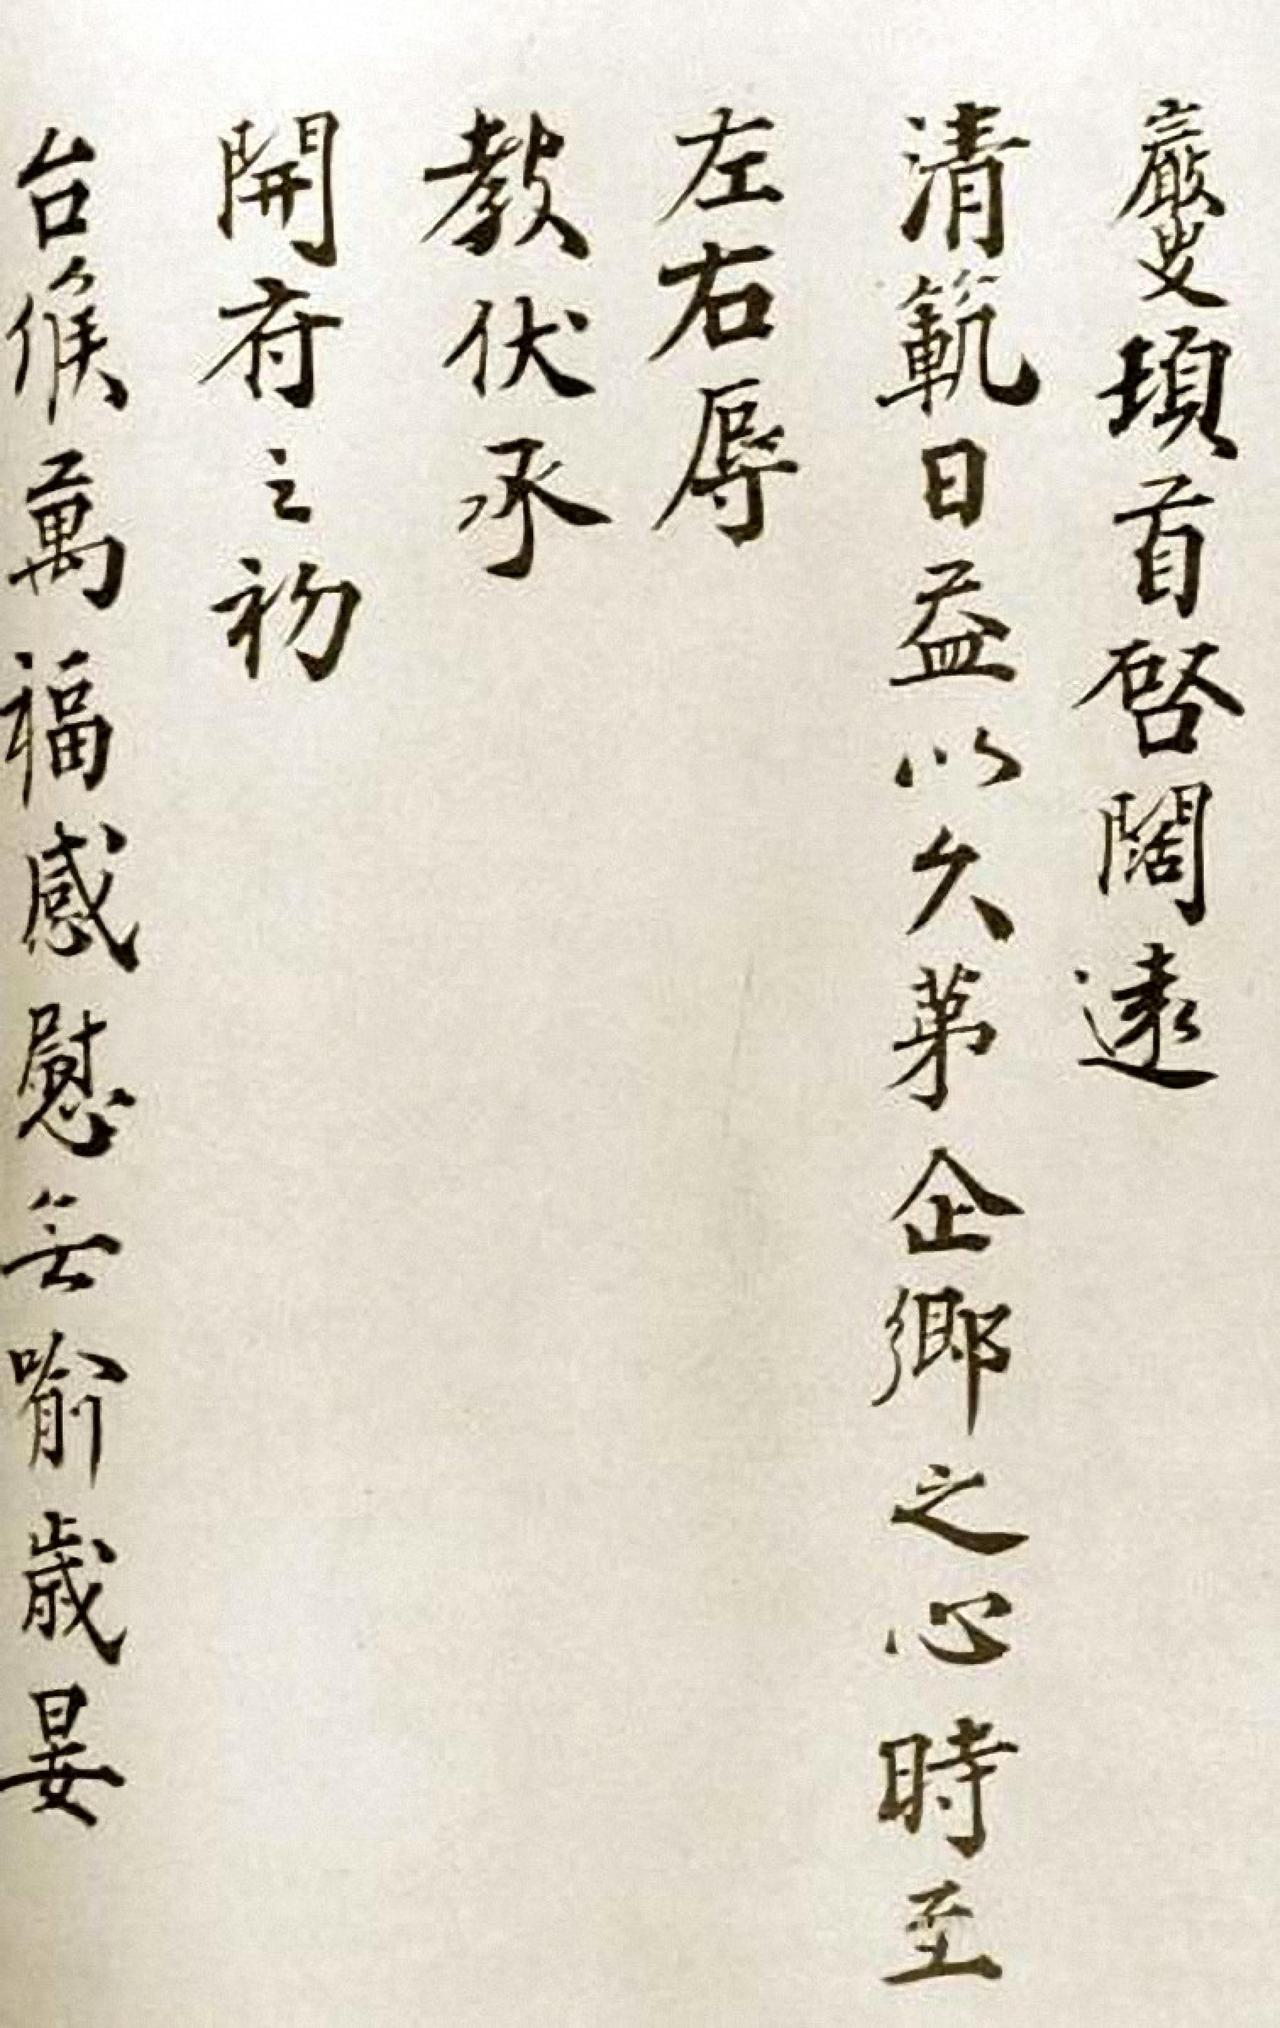 巖叟頓首啓闊遠
清範日益以久第企鄉之心時至
左右辱
教伏承
開府之初
台候萬福感慰無喻歲晏